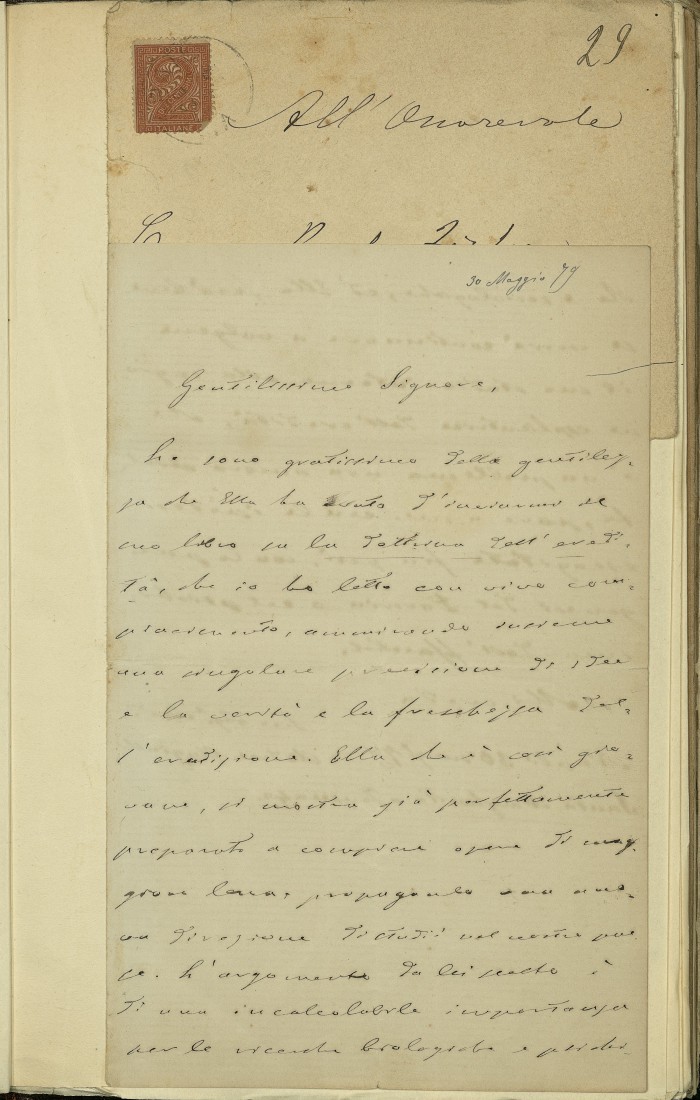 29
POSTE
2
ITALIANE
All' Onorevole
30 Maggio 79
Gentilissimo Signore,
Le sono gratissimo della gentilez-
za che Ella ha avuto d'inviarmi il
suo libro su la dottrina dell' eredi-
tà, che io ho letto con vivo com-
piacimento, ammirando insieme
una singolare precisione di idee
e la verità e la freschezza del-
l' erudizione. Ella che è così gio-
vane, si mostra già perfettamente
preparato a compiere opere di mag-
giore lena, propagando una nuo-
va direzione di studii nel nostro pae
se. L'argomento da lei scelto è
di una incalcolabile importanza
per le vicende biologiche e psichi-